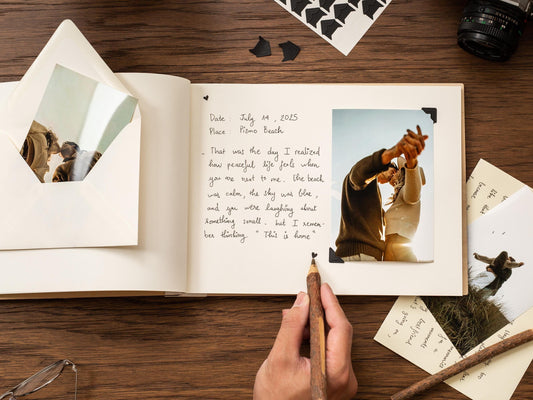 Date : July 14, 2025
Place : Pismo Beach
That was the day I realized
how peaceful life feels when
you are next to me. The beach
was calm, the sky was blue,
and you were laughing about
something small. but I remem-
ber thinking "This is home"